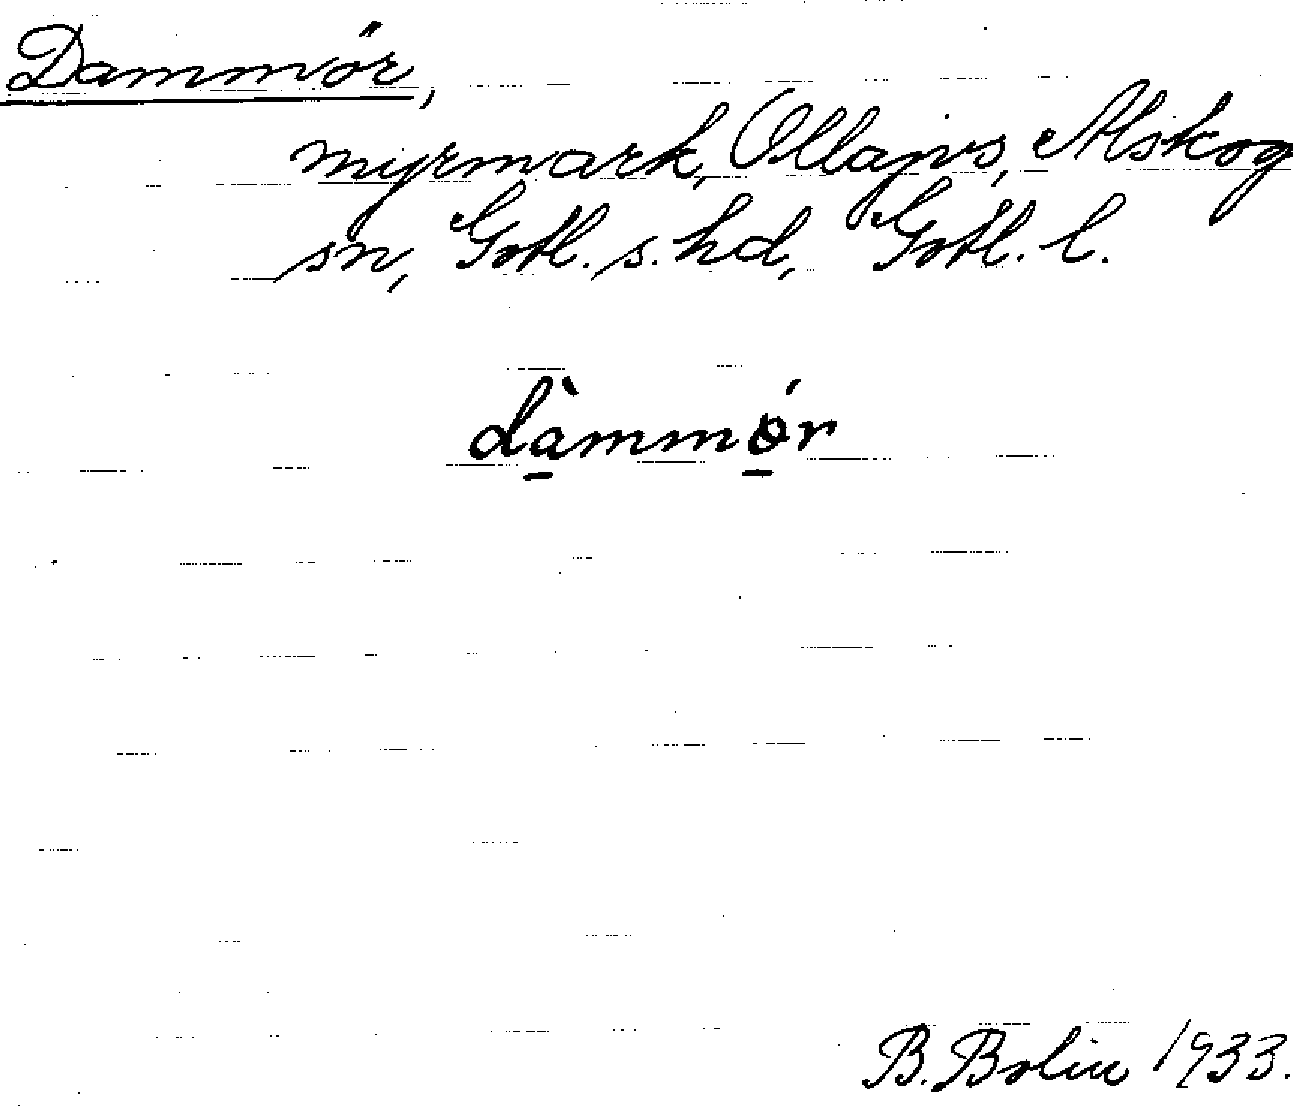 Dammör,
myrmark, Ollajvs, Alskog
sn, Gotl. s. hd, Gotl. l.
dàmmǿr
B. Bolin 1933.